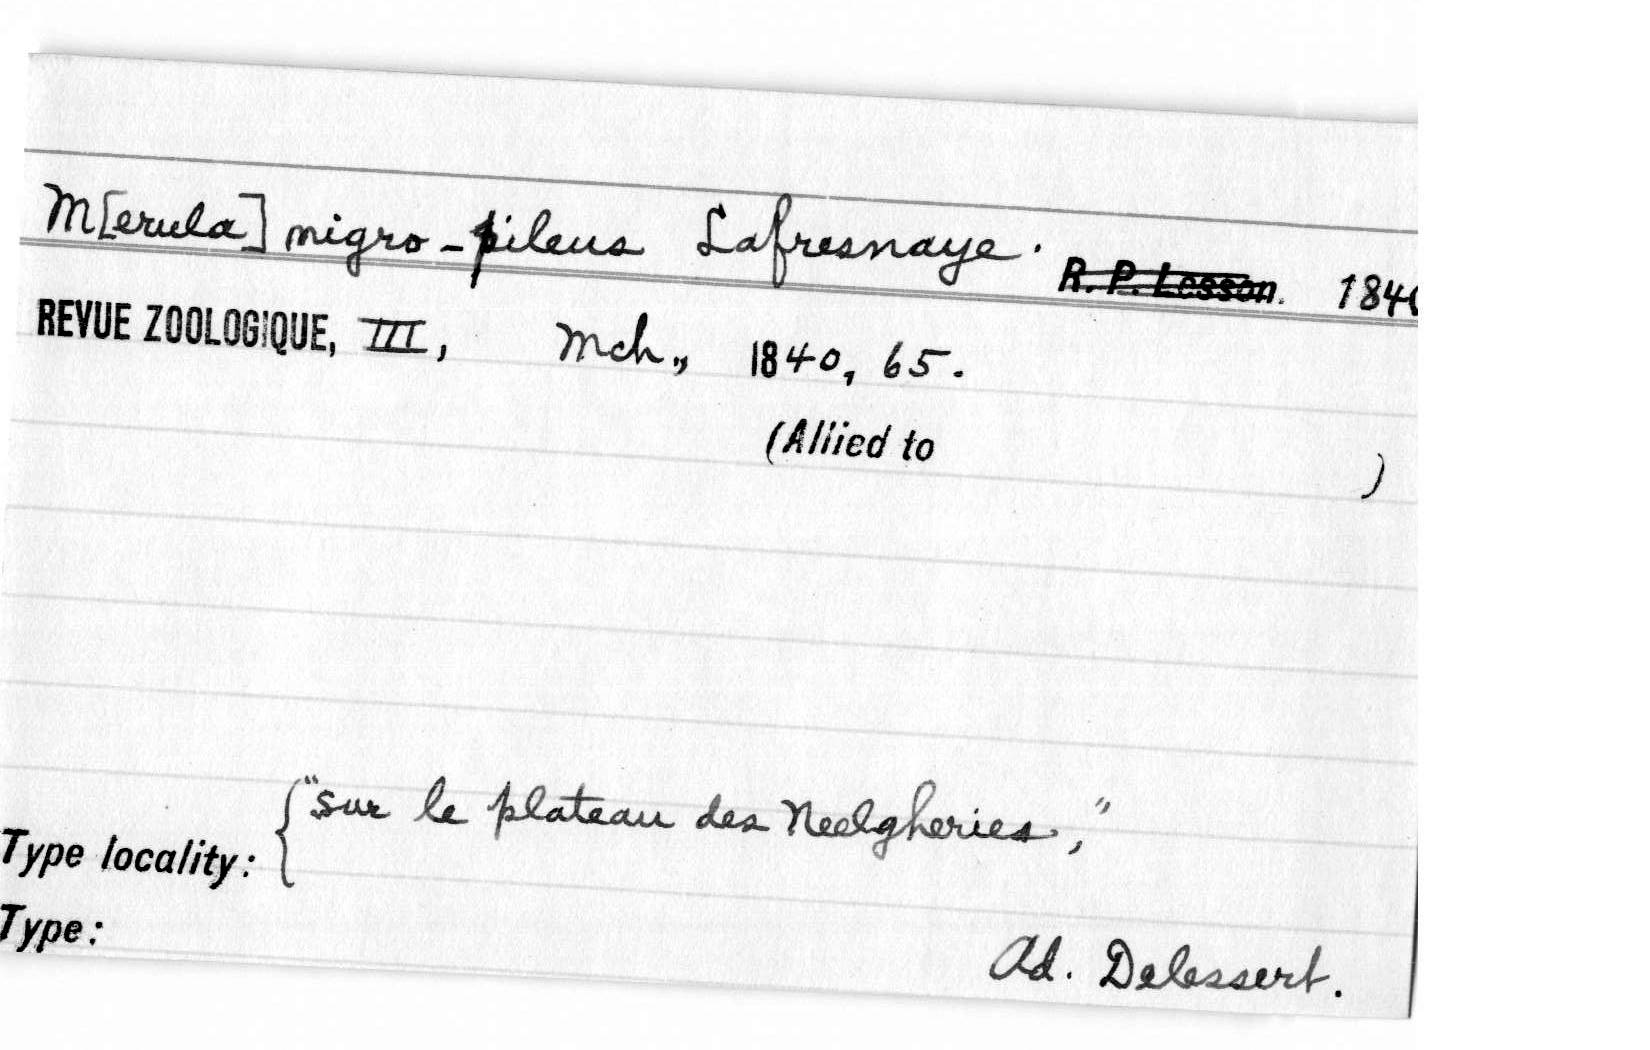 M[erula] nigro-pileus Lafresnaye. R. P. Lesson. 184
REVUE ZOOLOGIQUE, III, Mch., 1840, 65.
(Allied to )
Type locality: { "sur le plateau des Neelgheries,"
Type: Ad. Delessert.